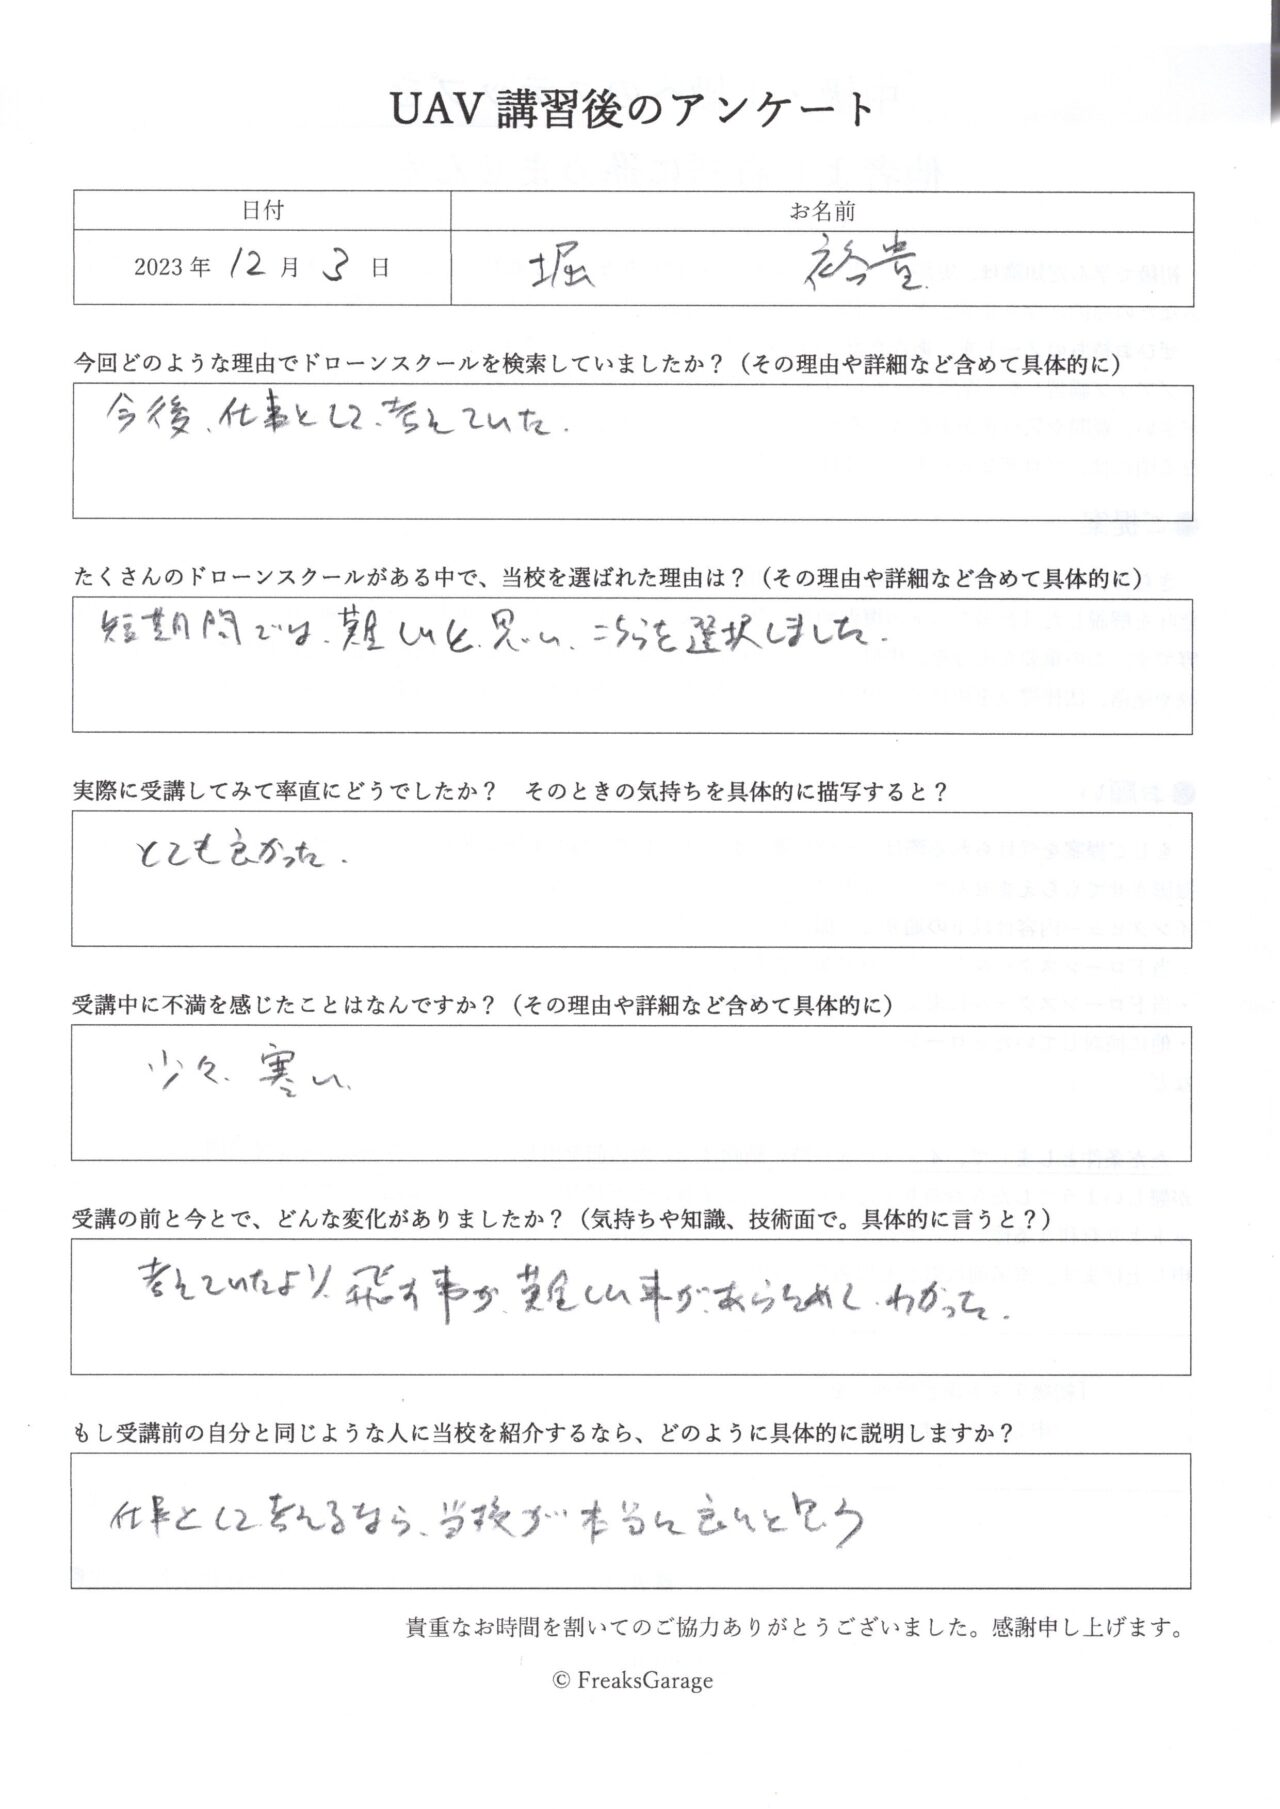 UAV 講習後のアンケート
日付 お名前
2023 年 12 月 3 日 堀 裕貴
今回どのような理由でドローンスクールを検索していましたか？（その理由や詳細など含めて具体的に）
今後、仕事として、考えていた.
たくさんのドローンスクールがある中で、当校を選ばれた理由は？（その理由や詳細など含めて具体的に）
短期間では、難しいと、思い、こちらを選択しました.
実際に受講してみて率直にどうでしたか？　そのときの気持ちを具体的に描写すると？
とても良かった.
受講中に不満を感じたことはなんですか？（その理由や詳細など含めて具体的に）
少々、寒い、
受講の前と今とで、どんな変化がありましたか？（気持ちや知識、技術面で。具体的に言うと？）
考えていたより、飛す事が、難しい事が、あらためて、わかった.
もし受講前の自分と同じような人に当校を紹介するなら、どのように具体的に説明しますか？
仕事として考えるなら、当校が本当に良いと思う
貴重なお時間を割いてのご協力ありがとうございました。感謝申し上げます。
© FreaksGarage